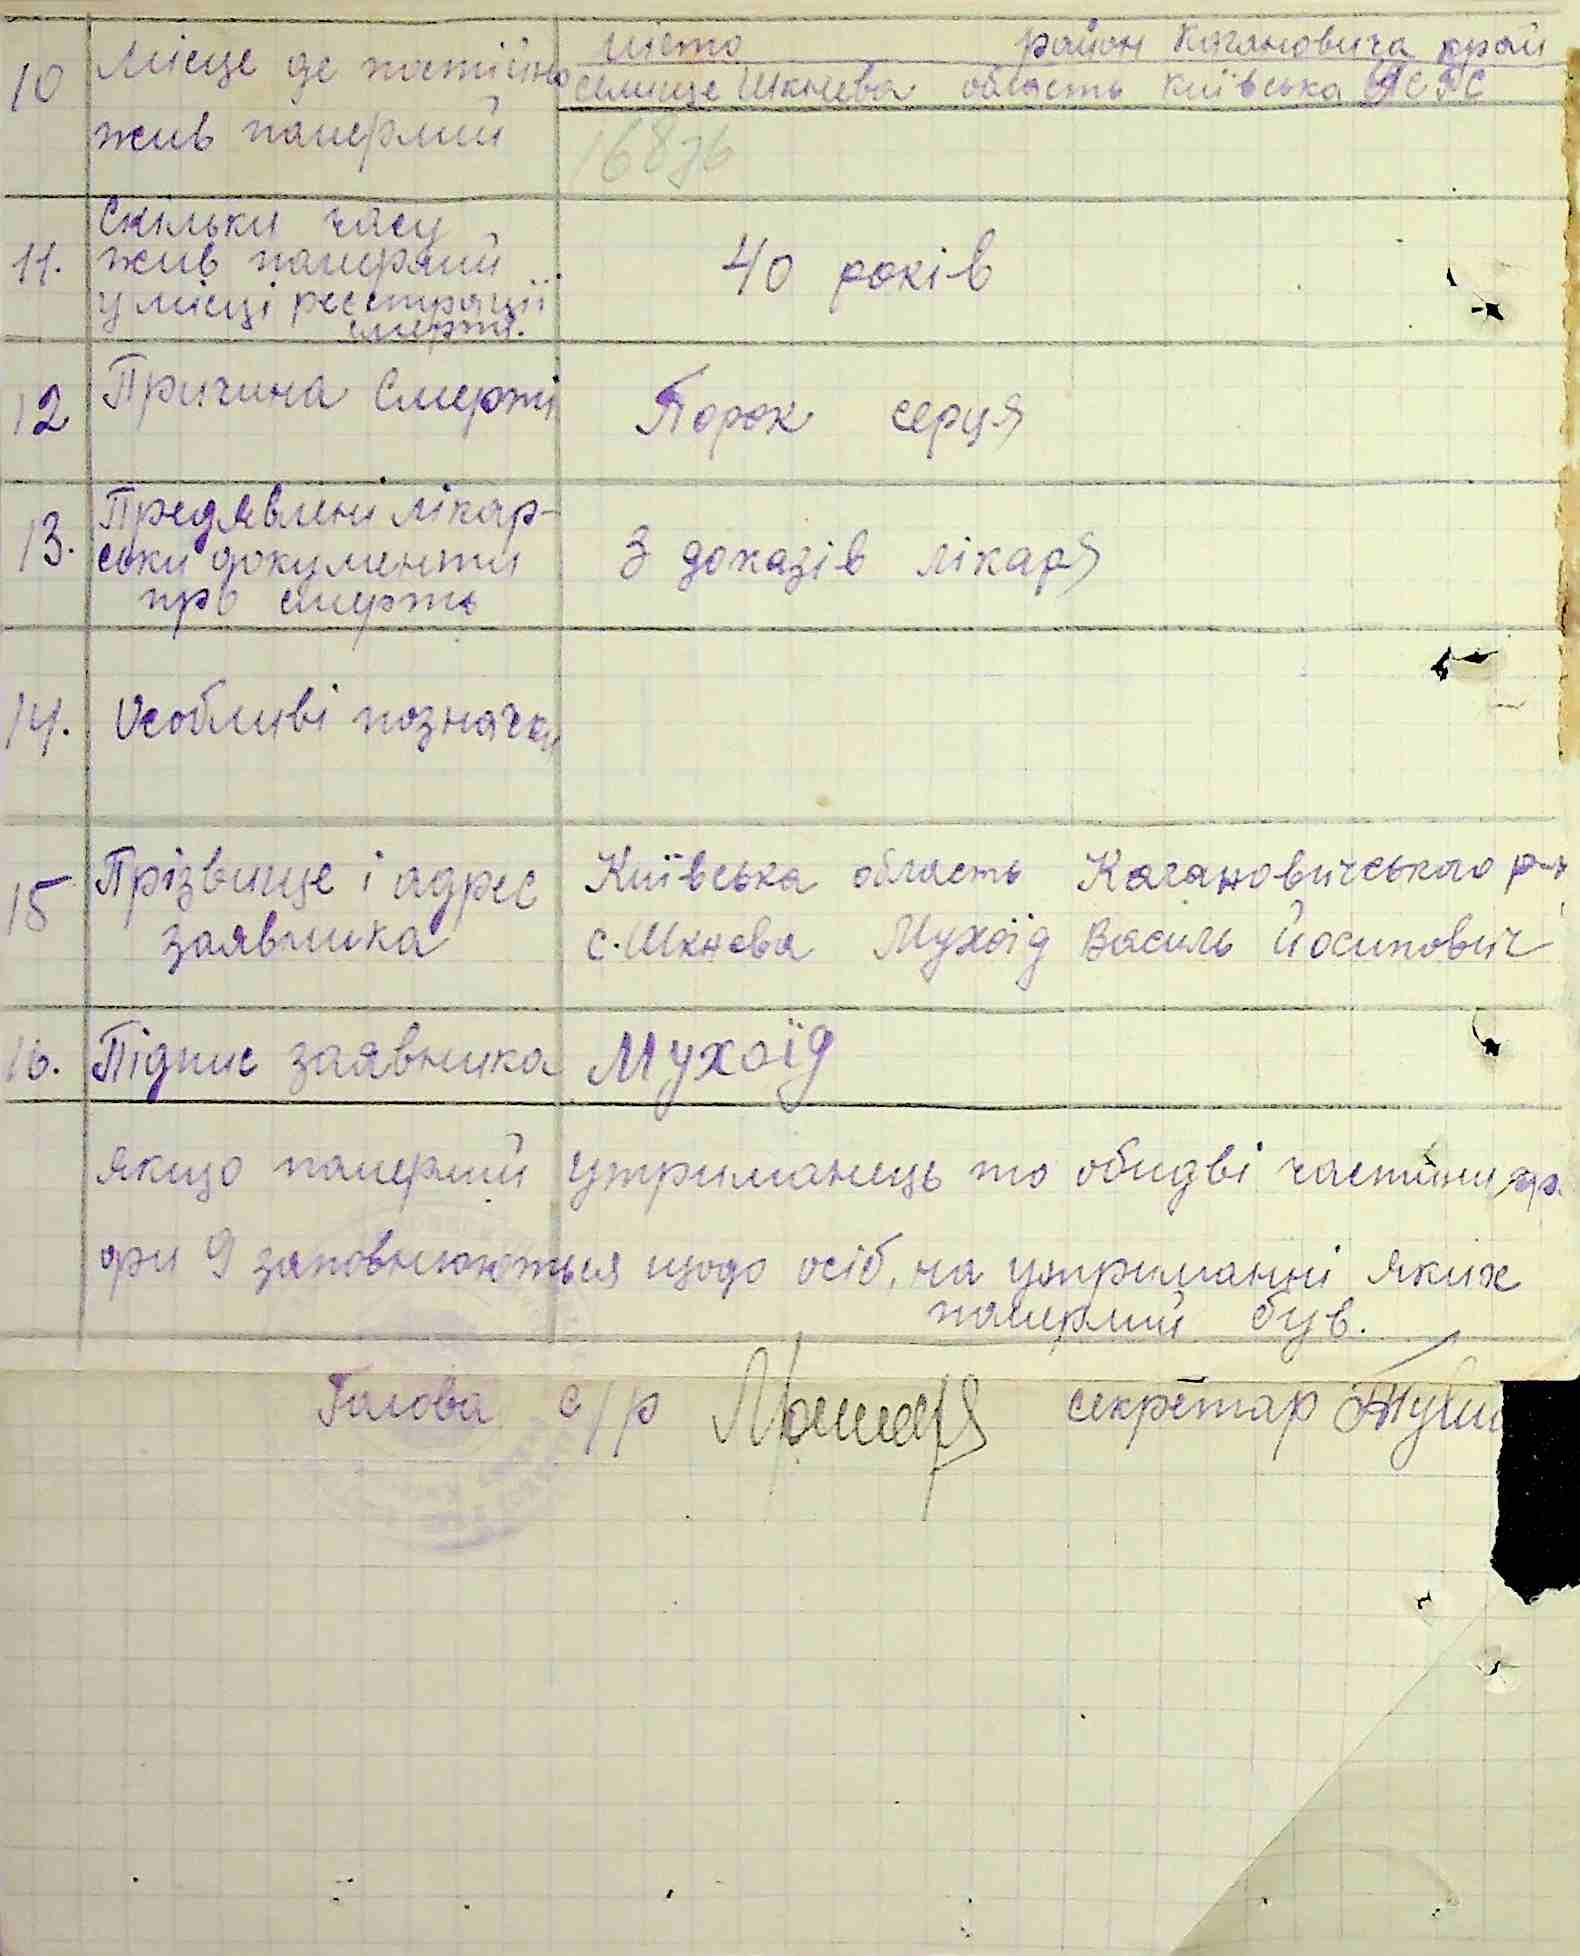 10 Місце де постійно
жив памерлий
місто район Кагановича край
селище Шкнева область Київська АСРС
16876
11. Скільки часу
жив памерлий
у місці реєстрації
смерти.
40 років
12 Причина Смерти
Порок серця
13. Предявлені лікар-
ськи документи
про смерть
З доказів лікаря
14. Особливі позначки
15 Прізвище і адрес
заявника
Київська область Кагановичського р-н
с. Шкнева Мухоїд Василь Йосипович
16. Підпис заявника Мухоїд
якщо памерлий утриманець то обидві частини гра
фи 9 заповнюються щодо осіб, на утриманні яких
памерлий був.
Голова с/р секретар